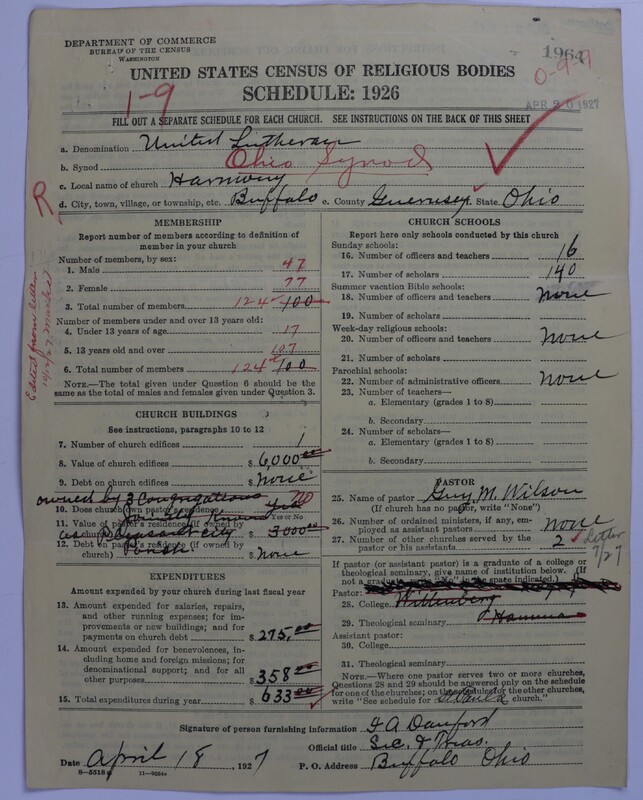 DEPARTMENT OF COMMERCE
BUREAU OF THE CENSUS
WASHINGTON
1964
UNITED STATES CENSUS OF RELIGIOUS BODIES
0-9-9
SCHEDULE: 1926
1-9
APR 20 1927
FILL OUT A SEPARATE SCHEDULE FOR EACH CHURCH. SEE INSTRUCTIONS ON THE BACK OF THIS SHEET
a. Denomination United Lutheran
b. Synod Ohio Synod
c. Local name of church Harmony
d. City, town, village, or township, etc. Buffalo e. County Guernsey f. State Ohio
R
MEMBERSHIP
Report number of members according to definition of
member in your church
Number of members, by sex:
1. Male 47
2. Female 77
3. Total number of members 124 100
Number of members under and over 13 years old:
4. Under 13 years of age 17
5. 13 years old and over 107
6. Total number of members 124 100
NOTE.—The total given under Question 6 should be
the same as the total of males and females given under Question 3.
CHURCH BUILDINGS
See instructions, paragraphs 10 to 12
7. Number of church edifices 1
8. Value of church edifices $ 6,000.00
9. Debt on church edifices $ None
owned by 3 Congregations
10. Does church own pastor's residence? Yes no
Yes or No
11. Value of pastor's residence (if owned by
church) $ 3000.00
Pleasant City
12. Debt on pastor's residence (if owned by
church) $ None
Parish
EXPENDITURES
Amount expended by your church during last fiscal year
13. Amount expended for salaries, repairs,
and other running expenses; for im-
provements or new buildings; and for
payments on church debt $ 275.00
14. Amount expended for benevolences, in-
cluding home and foreign missions; for
denominational support; and for all
other purposes $ 358.00
15. Total expenditures during year $ 633.00
CHURCH SCHOOLS
Report here only schools conducted by this church
Sunday schools:
16. Number of officers and teachers 16
17. Number of scholars 140
Summer vacation Bible schools:
18. Number of officers and teachers None
19. Number of scholars
Week-day religious schools:
20. Number of officers and teachers None
21. Number of scholars
Parochial schools:
22. Number of administrative officers None
23. Number of teachers—
a. Elementary (grades 1 to 8)
b. Secondary
24. Number of scholars—
a. Elementary (grades 1 to 8)
b. Secondary
PASTOR
25. Name of pastor Guy M. Wilson
(If church has no pastor, write "None")
26. Number of ordained ministers, if any, em-
ployed as assistant pastors None
27. Number of other churches served by the
pastor or his assistants 2
Letter
7/27
If pastor (or assistant pastor) is a graduate of a college or
theological seminary, give name of institution below. (If
not a graduate, write "No" in the space indicated.)
Pastor:
28. College Wittenberg
29. Theological seminary Hamma
Assistant pastor:
30. College
31. Theological seminary
NOTE.—Where one pastor serves two or more churches,
Questions 28 and 29 should be answered only on the schedule
for one of the churches; on the schedules for the other churches,
write "See schedule for church."
Signature of person furnishing information
Official title Sec. & Treas.
Date April 18, 1927
P. O. Address Buffalo Ohio
8-5518